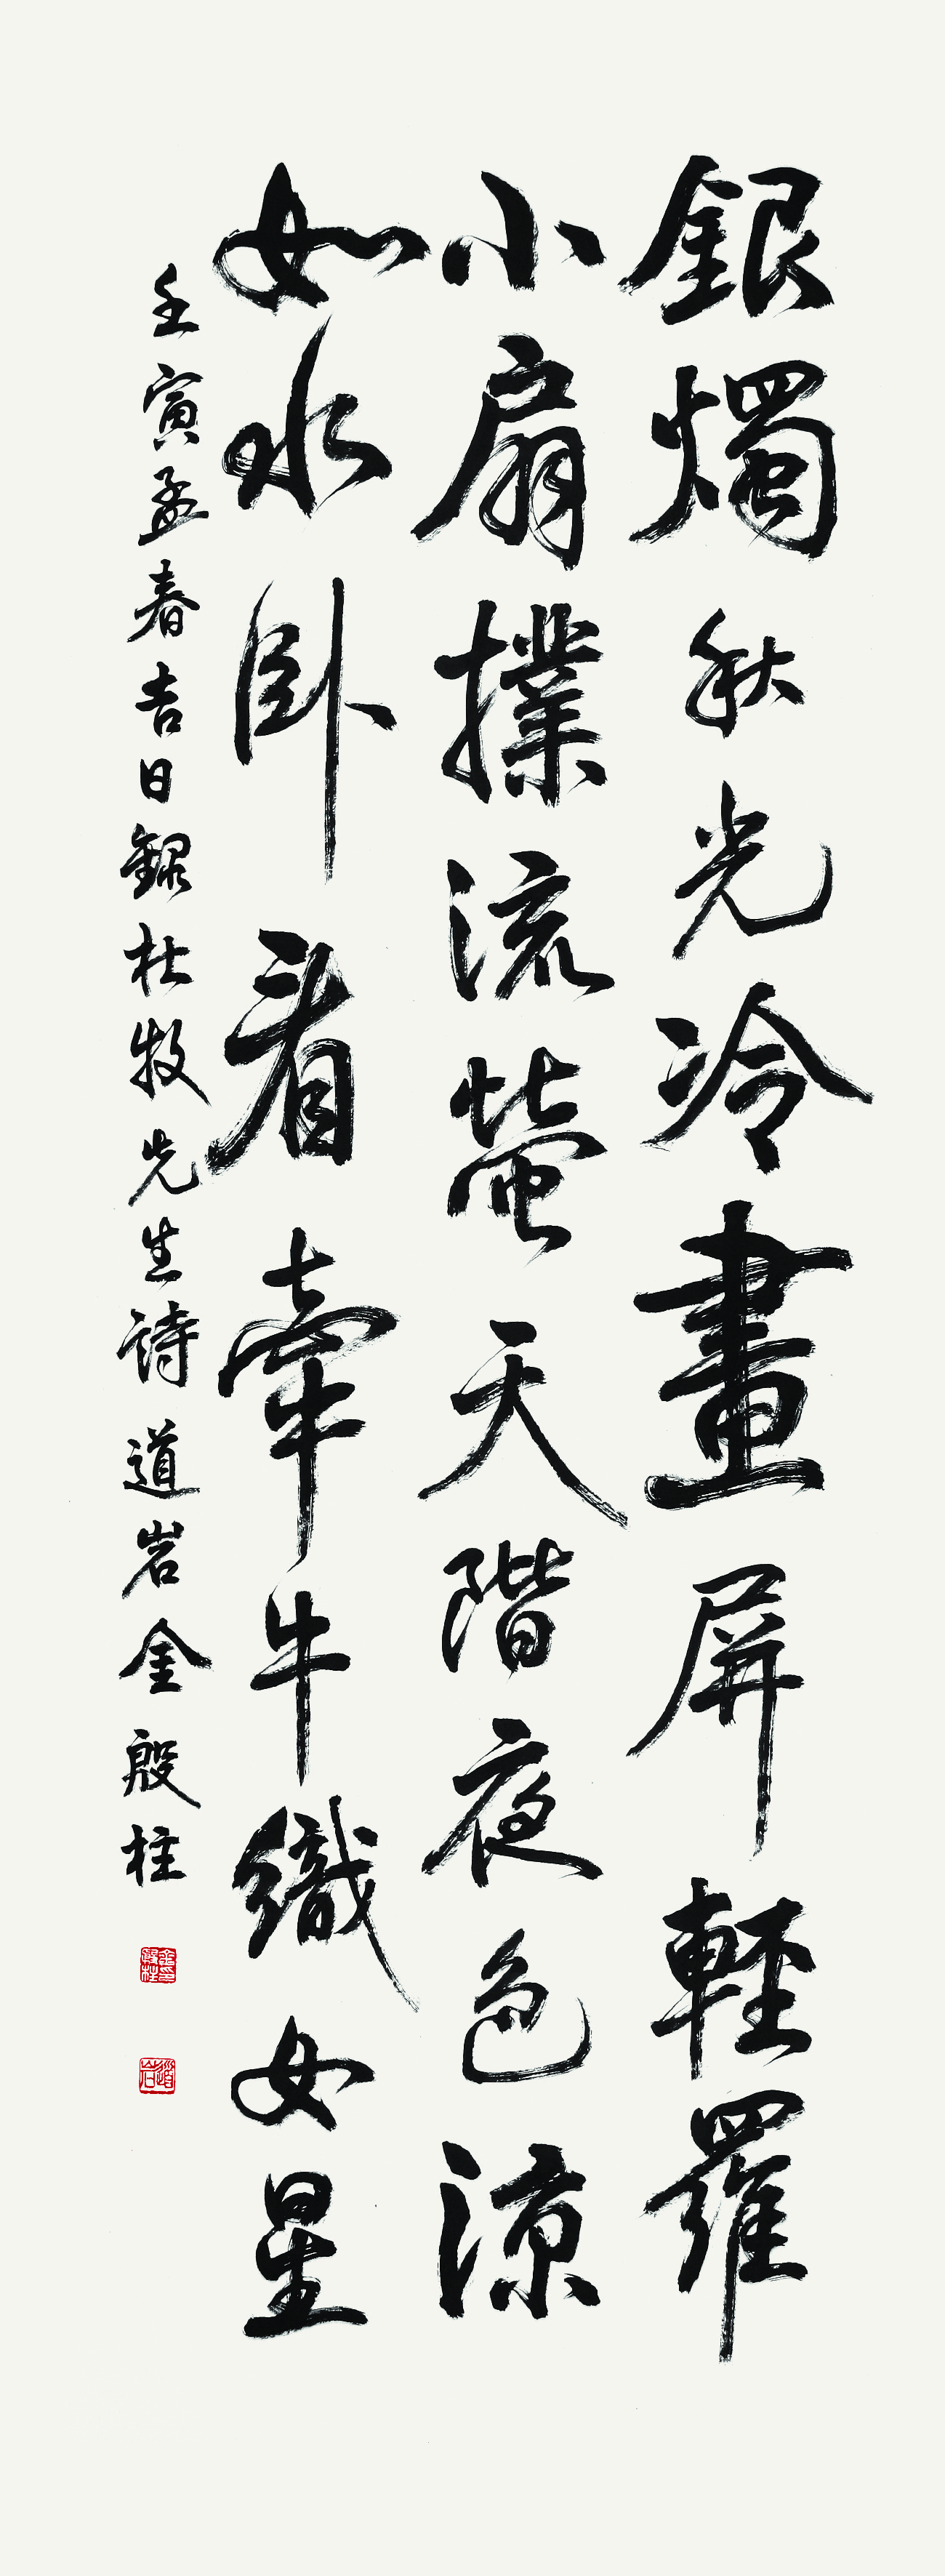 銀燭秋光冷畫屏輕羅
小扇撲流螢天階夜色涼
如水卧看牽牛織女星
壬寅孟春吉日録杜牧先生詩道岩金殷柱
金殷柱印
道岩